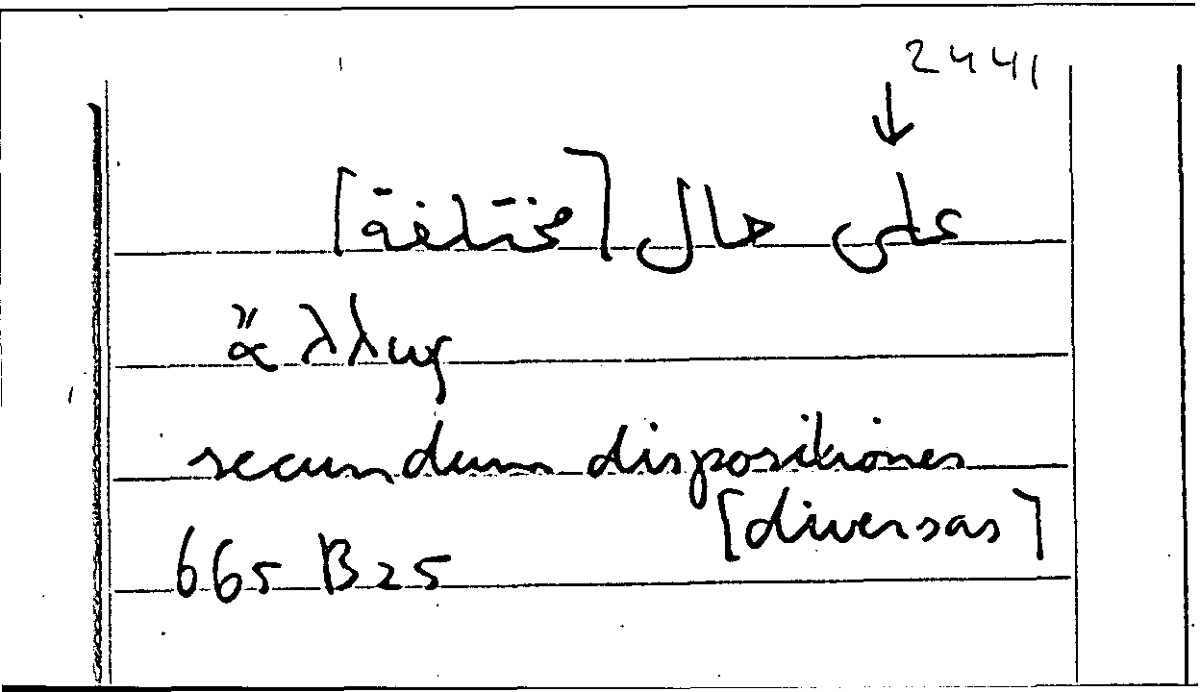 2441
↓
على حال [مختلفة]
ἄλλως
secundum dispositiones
[diversas]
665 B25